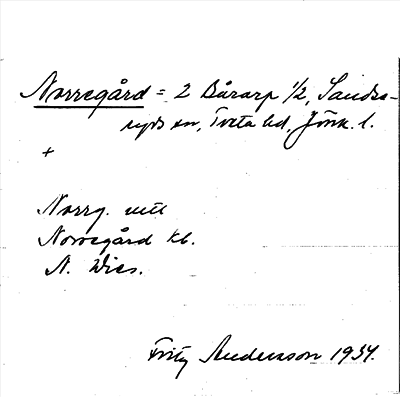 Norregård = 2 Bårarp 1/2, Sandse-
ryds sn, Tveta hd, Jönk. l.
+
Norrg. utt
Norregård kb.
N. Wies.
Fritz Andersson 1934.